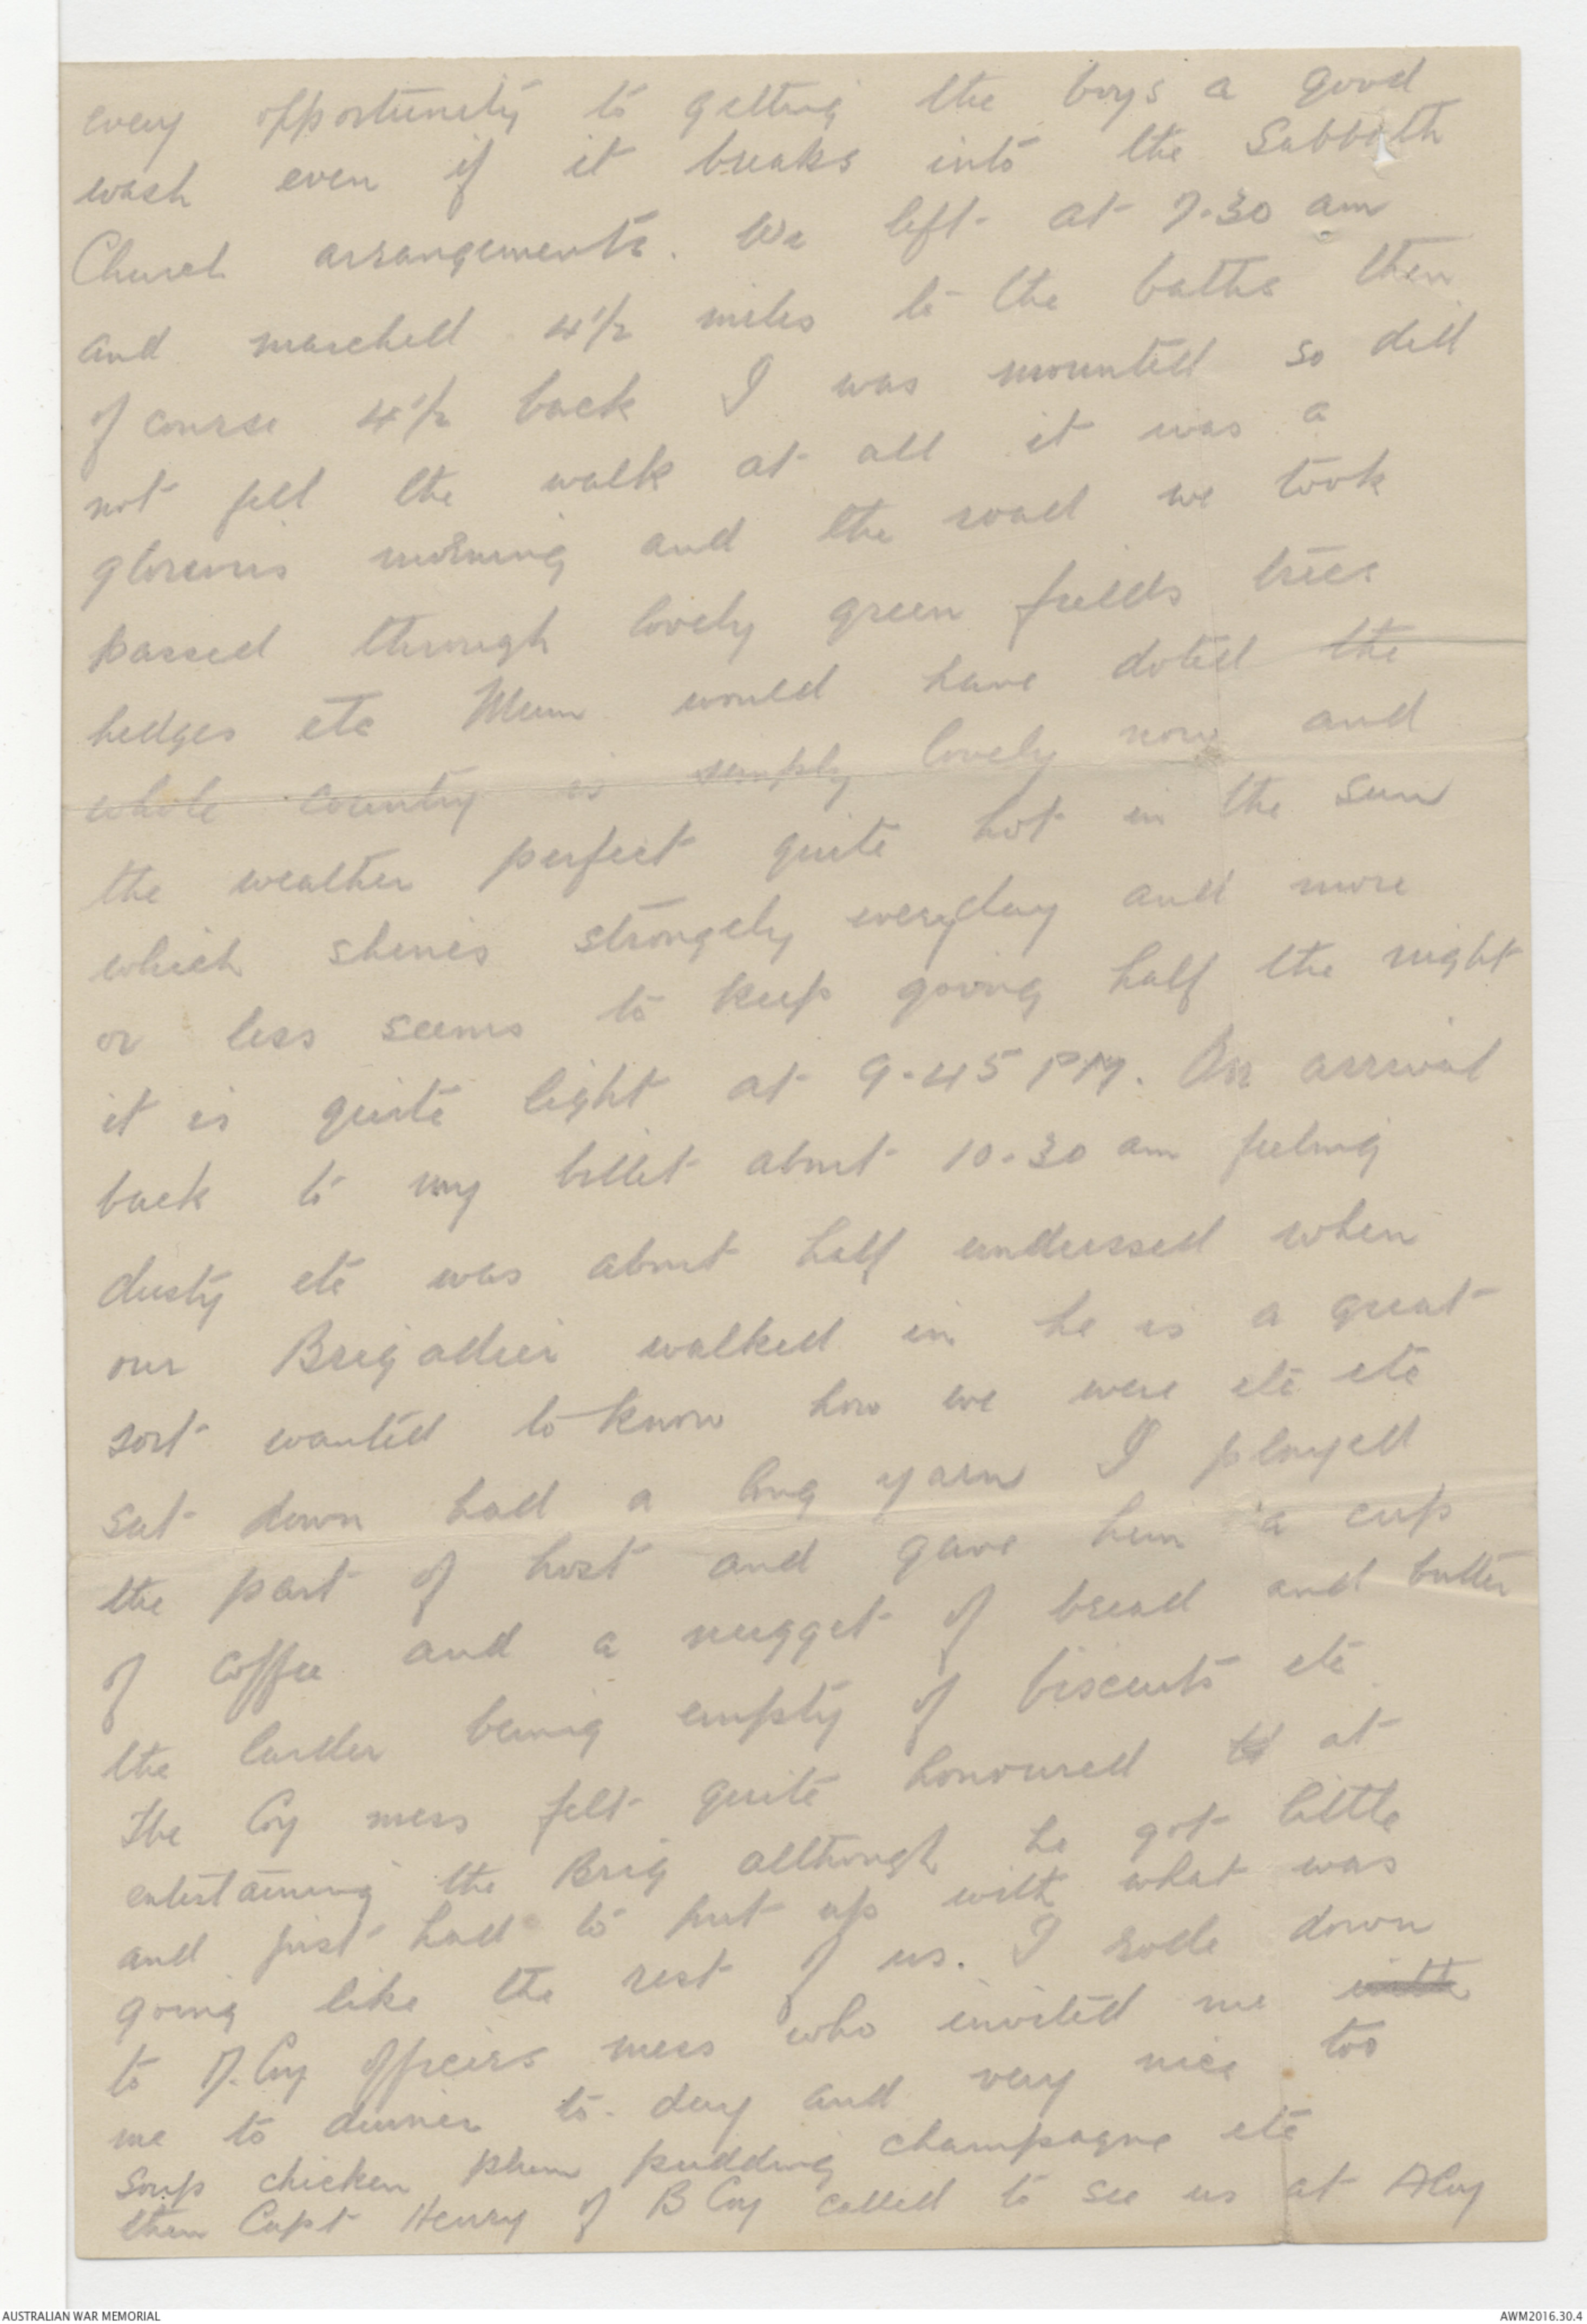 every opportunity to getting the boys a good
wash even if it breaks into the Sabbath
Church arrangements. We left at 7.30 am
and marched 4½ miles to the baths then
of course 4½ back I was mounted so did
not feel the walk at all it was a
glorious morning and the road we took
passed through lovely green fields trees
hedges etc Mum would have doted the
whole country is simply lovely now and
the weather perfect quite hot in the sun
which shines strongely everyday and more
or less seems to keep going half the night
it is quite light at 9.45 PM. On arrival
back to my billet about 10.30 am feeling
dusty etc was about half undressed when
our Brigadier walked in he is a great
sort wanted to know how we were etc etc
sat down had a long yarn I played
the part of host and gave him a cup
of coffee and a nugget of bread and butter
the larder being empty of biscuits etc
The Coy mess felt quite honoured at
entertaining the Brig although he got little
and just had to put up with what was
going like the rest of us. I rode down
to D. Coy Officers mess who invited me with
me to dinner to day and very nice too
Soup chicken plum pudding champagne etc
then Capt Henry of B Coy called to see us at A Coy
AUSTRALIAN WAR MEMORIAL
AWM2016.30.4